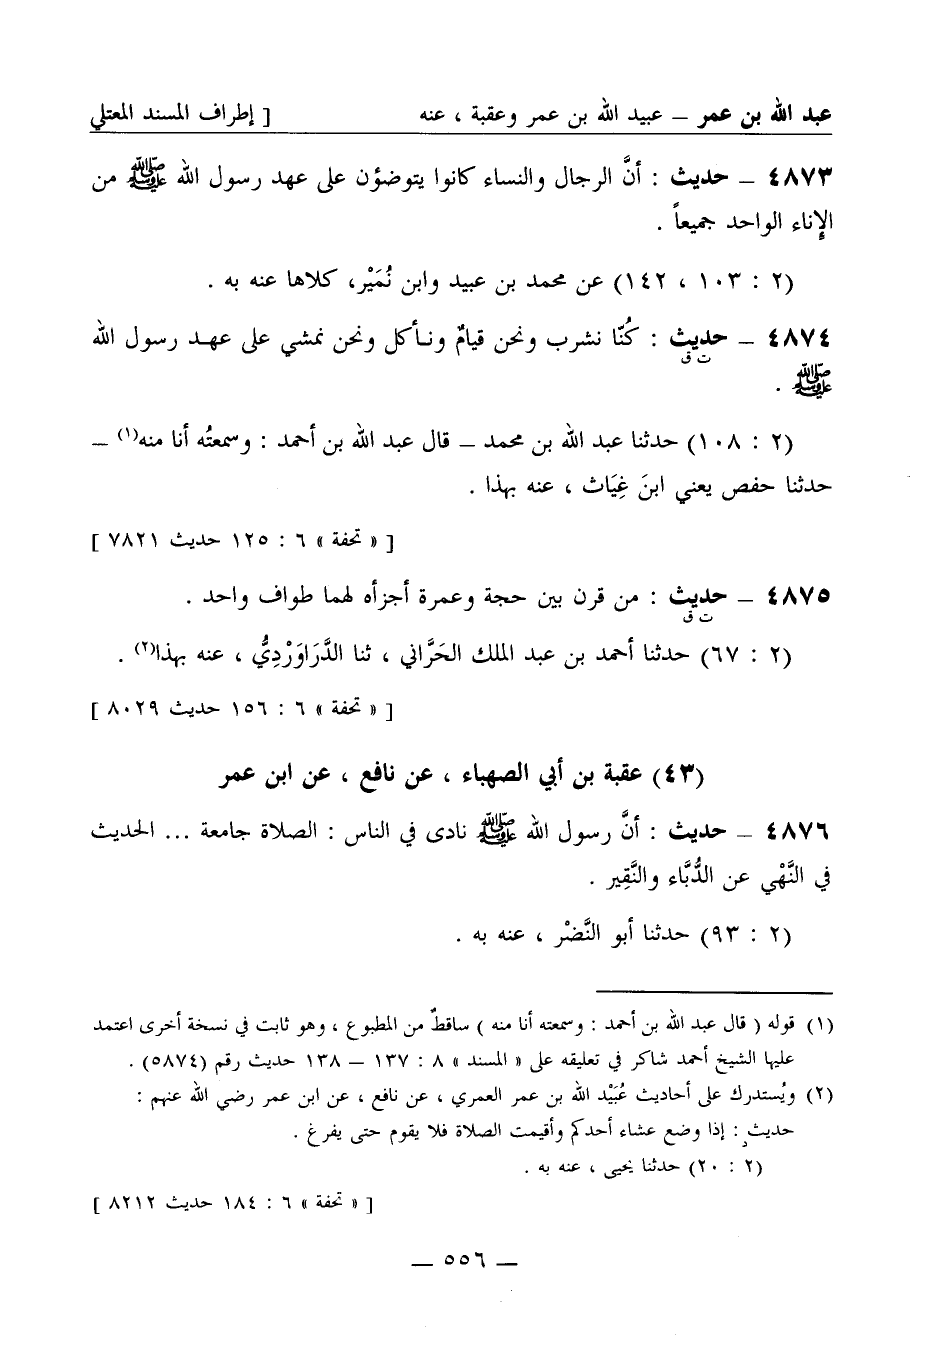 عبد الله بن عمر – عبيد الله بن عمر وعقبة ، عنه [ إطراف المسند المعتلي
٤٨٧٣ – حديث : أنَّ الرجال والنساء كانوا يتوضؤن على عهد رسول الله ﷺ من
الإناء الواحد جميعاً .
(٢ : ١٠٣ ، ١٤٢) عن محمد بن عبيد وابن نُمَيْر، كلاها عنه به .
٤٨٧٤ – حديث : كُنّا نشرب ونحن قيامٌ ونأكل ونحن نمشي على عهد رسول الله
ت ق
ﷺ .
(٢ : ١٠٨) حدثنا عبد الله بن محمد – قال عبد الله بن أحمد : وسمعتُه أنا منه(١) –
حدثنا حفص يعني ابنَ غِيَاث ، عنه بهذا .
[ « تحفة » ٦ : ١٢٥ حديث ٧٨٢١ ]
٤٨٧٥ – حديث : من قرن بين حجة وعمرة أجزأه لهما طواف واحد .
ت ق
(٢ : ٦٧) حدثنا أحمد بن عبد الملك الحَرَّاني ، ثنا الدَّرَاوَرْدِيُّ ، عنه بهذا(٢) .
[ « تحفة » ٦ : ١٥٦ حديث ٨٠٢٩ ]
(٤٣) عقبة بن أبي الصهباء ، عن نافع ، عن ابن عمر
٤٨٧٦ – حديث : أنَّ رسول الله ﷺ نادى في الناس : الصلاة جامعة ... الحديث
في النَّهْي عن الدُّبَّاء والنَّقِير .
(٢ : ٩٣) حدثنا أبو النَّضْر ، عنه به .
(١) قوله ( قال عبد الله بن أحمد : وسمعته أنا منه ) ساقطٌ من المطبوع ، وهو ثابت في نسخة أخرى اعتمد
عليها الشيخ أحمد شاكر في تعليقه على « المسند » ٨ : ١٣٧ – ١٣٨ حديث رقم (٥٨٧٤) .
(٢) ويُستدرك على أحاديث عُبَيْد الله بن عمر العمري ، عن نافع ، عن ابن عمر رضي الله عنهم :
حديثِ : إذا وضع عشاء أحدكم وأقيمت الصلاة فلا يقوم حتى يفرغ .
(٢ : ٢٠) حدثنا يحيى ، عنه به .
[ « تحفة » ٦ : ١٨٤ حديث ٨٢١٢ ]
– ٥٥٦ –